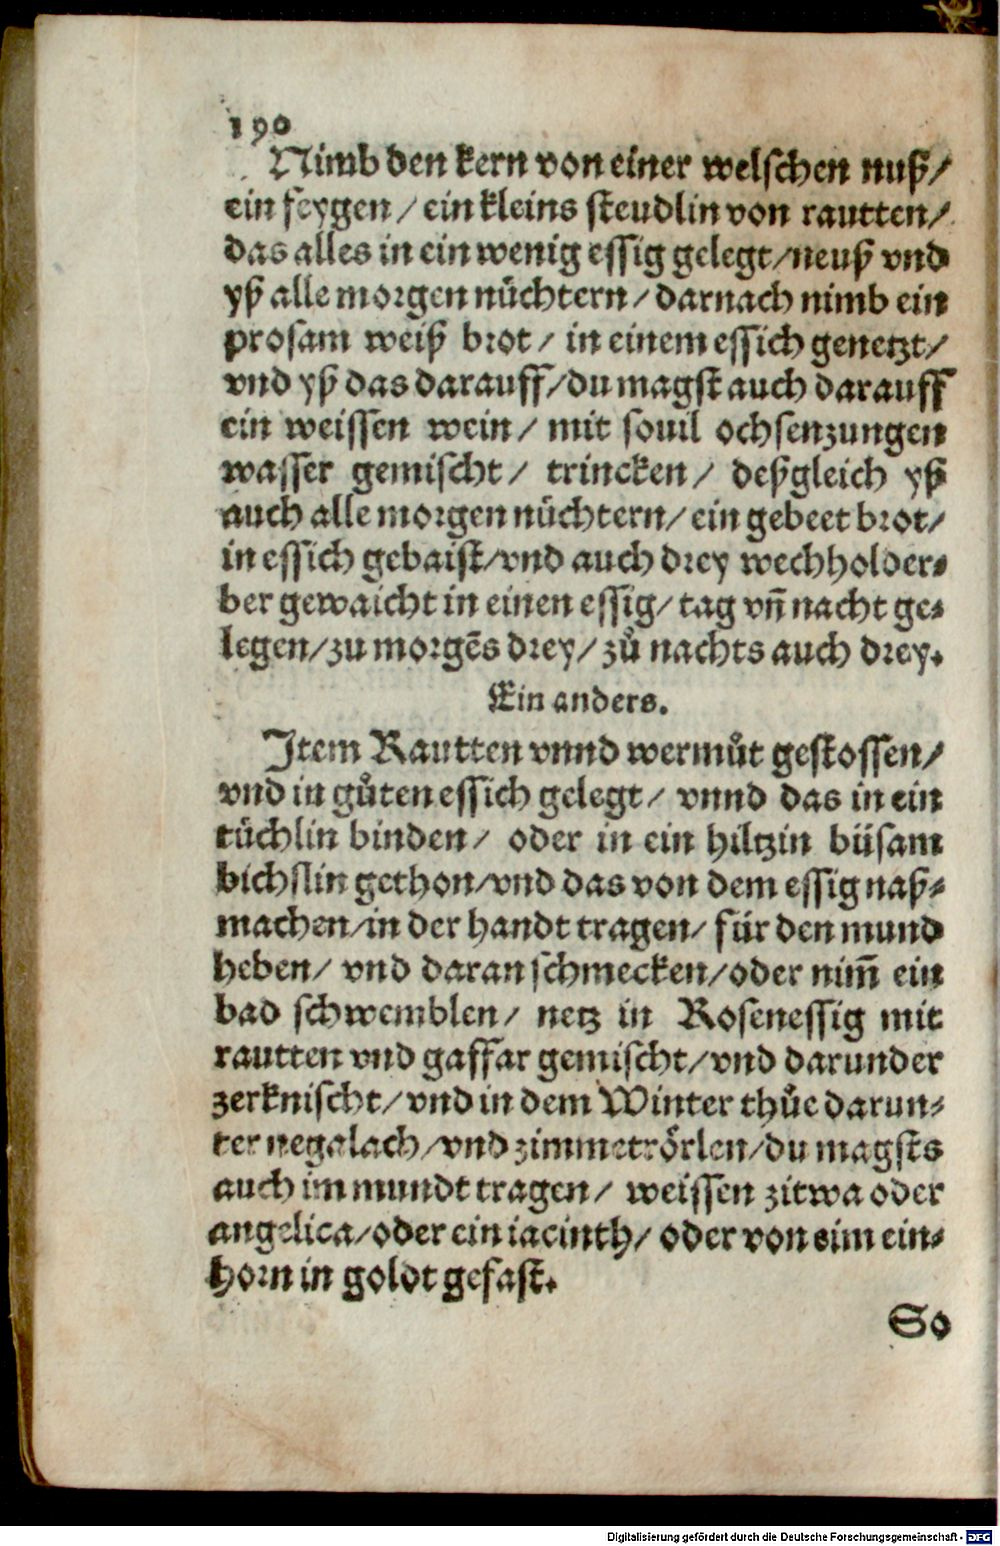 190
Nimb den kern von einer welschen nuß/
ein feygen / ein kleins steudlin von rautten/
das alles in ein wenig essig gelegt/neuß vnd
yß alle morgen nüchtern / darnach nimb ein
prosam weiß brot / in einem essich genetzt/
vnd yß das darauff/du magst auch darauff
ein weissen wein / mit souil ochsenzungen
wasser gemischt / trincken / deßgleich yß
auch alle morgen nüchtern/ ein gebeet brot/
in essich gebaist/vnd auch drey wechholder⸗
ber gewaicht in einen essig/ tag vn̄ nacht ge⸗
legen/zu morgēs drey/ zů nachts auch drey.
Ein anders.
Item Rautten vnnd wermůt gestossen/
vnd in gůten essich gelegt/ vnnd das in ein
tüchlin binden/ oder in ein hiltzin biisam
bichslin gethon/vnd das von dem essig naß⸗
machen/in der handt tragen/ für den mund
heben/ vnd daran schmecken/oder nim̄ ein
bad schwemblen/ netz in Rosenessig mit
rautten vnd gaffar gemischt/vnd darunder
zerknischt/vnd in dem Winter thůe darun⸗
ter negalach/vnd zimmetrörlen/du magsts
auch im mundt tragen/ weissen zitwa oder
angelica/oder ein iacinth/ oder von eim ein⸗
horn in goldt gefast.
So
Digitalisierung gefördert durch die Deutsche Forschungsgemeinschaft - DFG